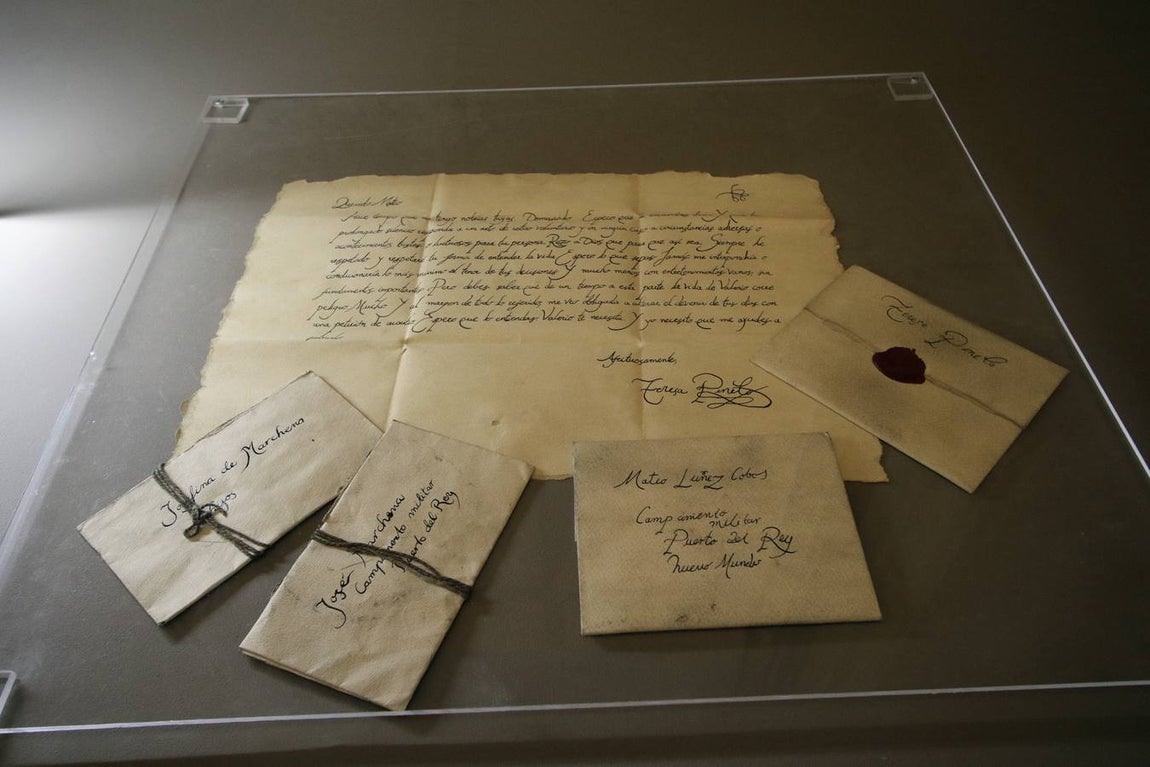 Querido Mateo
Hace tiempo que no tengo noticias tuyas. Demasiado. Espero que
prolongado silencio responda a un acto de retiro voluntario y en ningún caso a circunstancias adversas o
acontecimientos luctuosos para tu persona. Rezo a Dios que para que así sea. Siempre he
respetado y respetaré tu forma de entender la vida. Espero lo que sepas. Jamás me interpondría o
condicionaría lo más mínimo el tenor de tus decisiones. Y mucho menos con entretenimientos vanos, sin
fundamentos importantes. Pero debes saber que de un tiempo a esta parte la vida de Valerio corre
peligro. Mucho. Y al margen de todo lo referido, me veo obligada a alterar el devenir de tus días con
una petición de auxilio. Espero que lo entiendas. Valerio te necesita. Y yo necesito que me ayudes a
Afectuosamente,
Teresa Pinelo
Teresa Pinelo
Josefina de Marchena
José Marchena
Campamento militar
Puerto del Rey
Mateo Luñez Cobos
Campamento
militar
Puerto del Rey
Nuevo Mundo